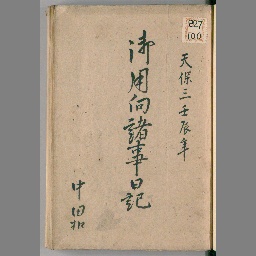 227
100
天保三壬辰年
御用向諸事日記
中田